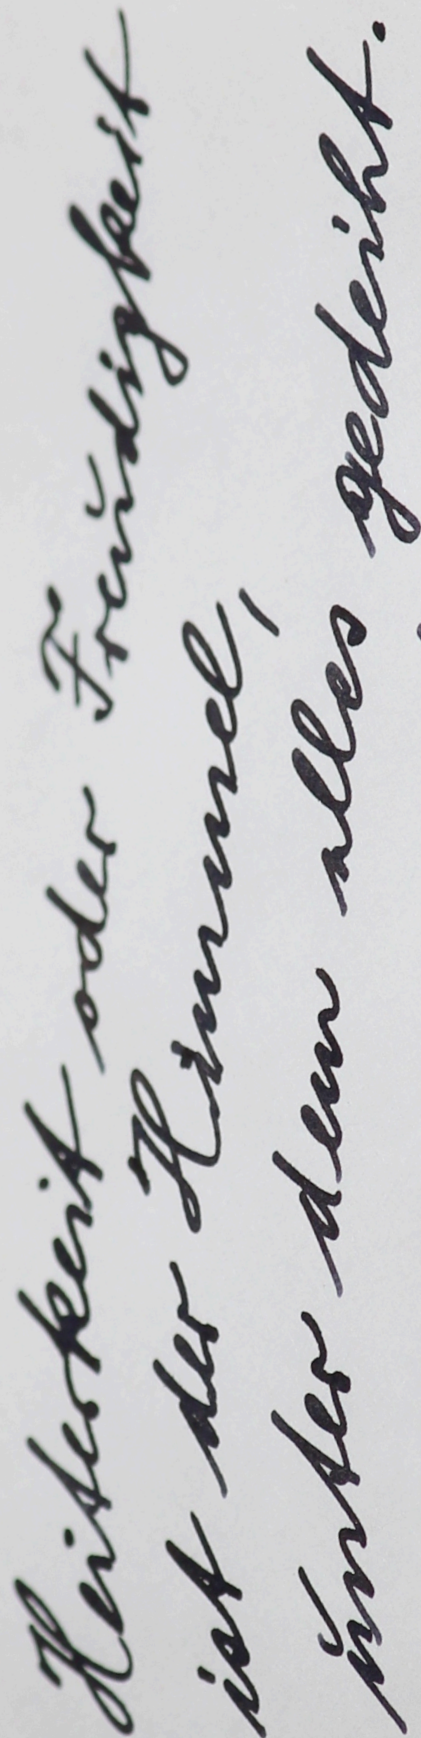 Heiterkeit oder Freudigkeit
ist der Himmel,
unter dem alles gedeiht.